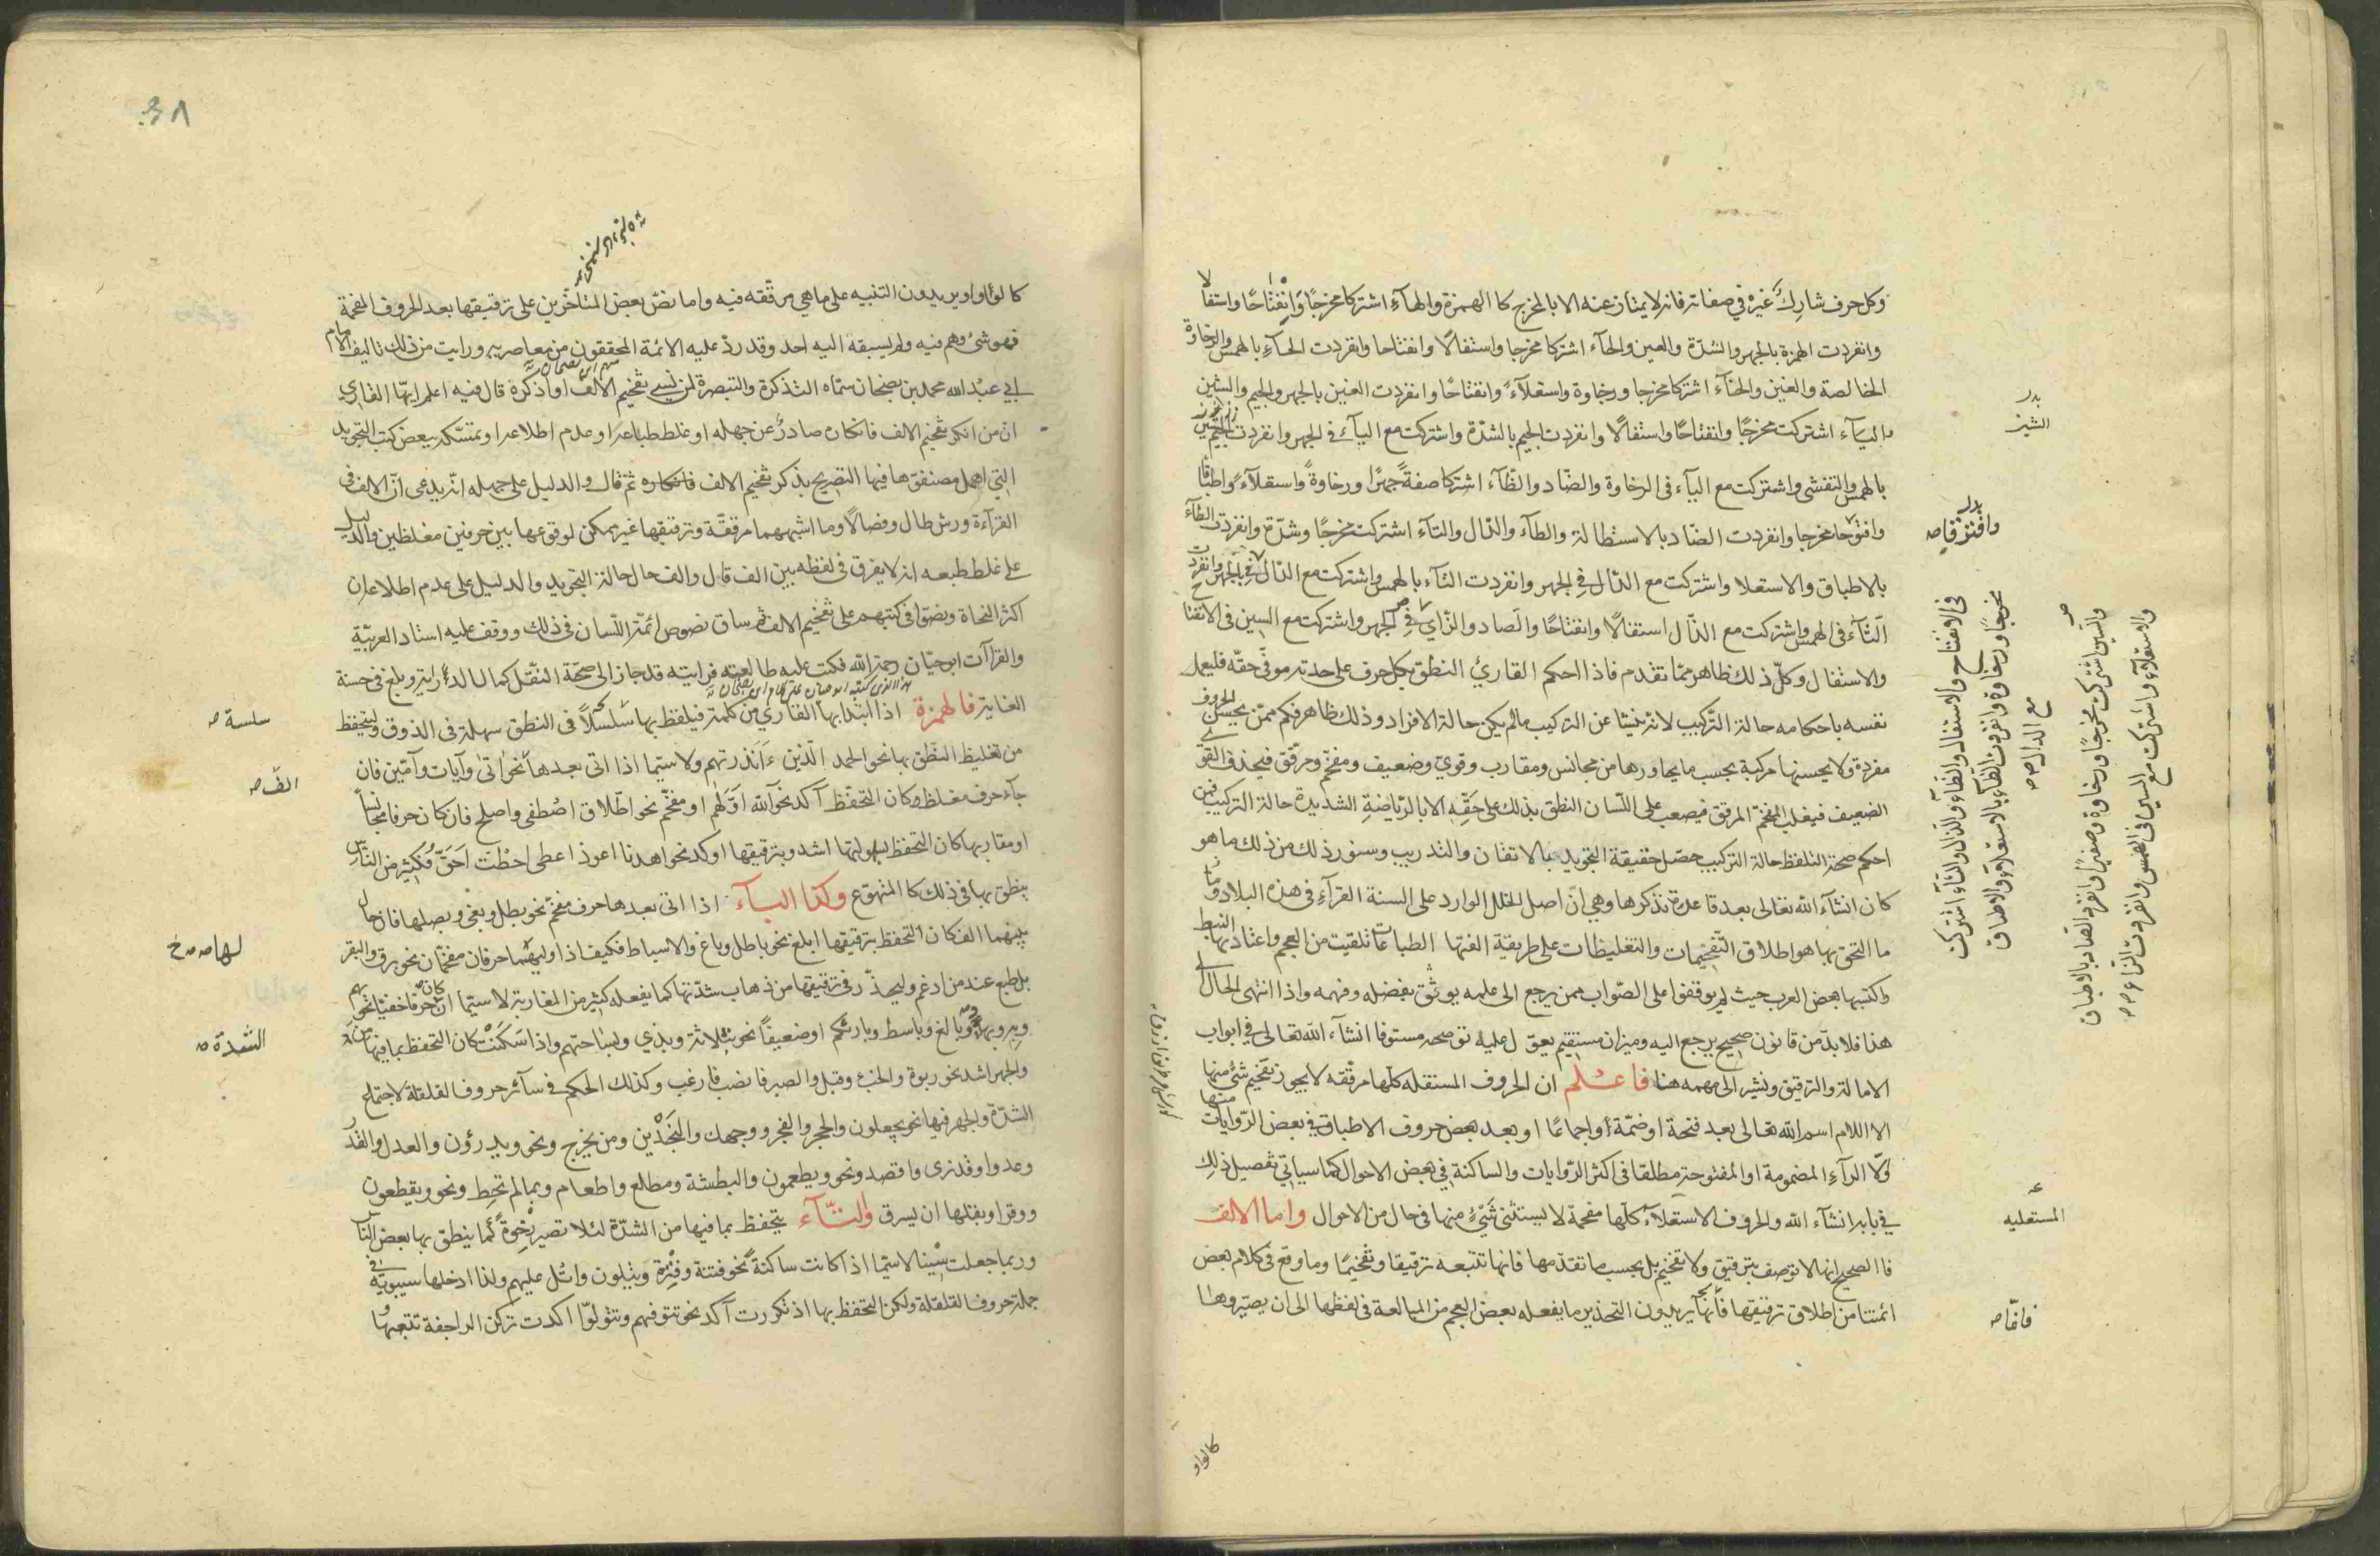 وكل حرف شارك غيره في صفاته فانه لا يمتاز عنه الا بالمخرج كا الهمزة والهآء اشتركا مخرجًا وانفتاحًا واستفالا
وانفردت الهمزة بالجهر والشدّة والعين والحآء اشتركا مخرجا واستفالًا وانفتاحا وانفردت الحآء بالهمس والرخاوة
الخالصة والغين والخآء اشتركا مخرجا ورخاوة واستعلآءً وانفتاحًا وانفردت الغين بالجهر والجيم والشين
واليآء اشتركت مخرجًا وانفتاحًا واستفالًا وانفردت الجيم بالشدّة واشتركت مع اليآء في الجهر وانفردت الشين
بالهمس والتفشي واشتركت مع اليآء فى الرخاوة والضاد والظآء اشتركا صفةً جهرًا ورخاوةً واستعلآءً واطباقا
وافترقا مخرجا وانفردت الضاد بالاستطالة والطآء والدال والتآء اشتركت مخرجًا وشدّة وانفردت الطآء
بالاطباق والاستعلا واشتركت مع الدال في الجهر وانفردت التآء بالهمس واشتركت مع الدال
الثآء فى الهمس واشتركت مع الذال استفالًا وانفتاحًا والصاد والزاي في الجهر واشتركت مع السين فى الانفتاح
والاستفال وكلّ ذلك ظاهر ممّا تقدم فاذا احكم القارئ النطق بكل حرف على حدته موفّي حقّه فليعمل
نفسه باحكامه حالة التّركيب لانه ينشا عن التركيب مالم يكن حالة الافراد وذلك ظاهر فكم ممن يحسن الحروف
مفردة ولا يحسنها مركبة بحسب ما يجاورها من مجانس ومقارب وقوي وضعيف ومفخّم ومرقّق فيجذب القوي
الضعيف فيغلب المفخّم المرقق فيصعب على اللّسان النطق بذلك على حقّه الا بالرّياضة الشديدة حالة التركيب فمن
احكم صحة التلفظ حالة التركيب حصّل حقيقة التجويد بالاتقان والتدريب وسنورد لك من ذلك ما هو
كان انشآء الله تعالى بعد قاعدة نذكرها وهي انّ اصل الخلل الوارد على السنة القرآء فى هذه البلاد وما
ما التحق بها هو اطلاق التّفخيمات والتغليظات على طريقة الفتها الطباعات تلقيت من العجم واعتادتها النبط
واكتسبها بعض العرب حيث لم يوقفوا على الصّواب ممن يرجع الى علمه يوثق بفضله وفهمه واذا انتهى الحال الى
هذا فلا بدّ من قانون صحيح يرجع اليه وميزان مستقيم يعوّل عليه نوضحه مستوفا انشآء الله تعالى في ابواب
الامالة والترقيق ونشير الى مهمه هنا فاعلم ان الحروف المستفله كلّها مرقّقه لا يجوز تفخيم شئ منها
الا اللام اسم الله تعالى بعد فتحة او ضمّة أو اجماعًا او بعد بعض حروف الاطباق في بعض الرّوايات
والّا الرآء المضمومة او المفتوحة مطلقا فى اكثر الرّوايات والساكنة في بعض الاحوال كما سياتي تفصيل ذلك
في بابه انشآء الله والحروف الاستعلآء كلّها مفخمة لا يستثنى شئٌ منها في حال من الاحوال واما الالف
فا الصحيح انها لا توصف بترقيق ولا تفخيم بل بحسب ما تقدّمها فانها تتبعه ترقيقا وتفخيمًا وما وقع فى كلام بعض
ائمتنا من اطلاق ترقيقها فأنما يريدون التحذير مما يفعله بعض العجم من المبالغة فى لفظها الى ان يصيّروها
كالواو
بدر
الشين
بدر
وافترقا صح
فى الانفتاح والاستفال والظآء والذال والثآء اشتركت
مخرجًا ورخاوة وانفردت الظآء بالاستعلآء والاطباق
مع الذال صح
والسين اشتركت مخرجًا ورخاوة وصفيرًا وانفرد الصاد بالاطباق
والاستعلآء واشتركت مع السين فى الهمس وانفردت الزاء صح
المستعليه
فانّما صح
كالواو او يريدون التنبيه على ما هي مرقّقه فيه واما نصّ بعض المتاخّرين على ترقيقها بعد الحروف المفخمة
فهو شئ وهم فيه ولم يسبقه اليه احد وقد ردّ عليه الائمة المحققون من معاصريه ورايت من ذلك تاليف الامام
ابي عبد الله محمد بن بصخان سمّاه التذكرة والتبصرة لمن نسي تفخيم الالف او انكره قال فيه اعلم ايهّا القاري
انّ من انكر تفخيم الالف فانكاره صادرٌ عن جهله او غلط طباعه او عدم اطلاعه او تمسّكه ببعض كتب التجويد
التي اهمل مصنفوها فيها التصريح بذكر تفخيم الالف فانكاره ثم قال والدليل على جهله انّه يدعى انّ الالف فى
القرآءة ورش طال وفصالًا وما اشبههما مرققّة وترقيقها غير ممكن لوقوعها بين حرفين مغلظين والدليل
على غلط طبعه انه لا يفرق فى لفظه بين الف قال والف حال حالة التجويد والدليل على عدم اطلاعه ان
اكثر النحاة ونصّوا فى كتبهم على تفخيم الالف ثم ساق نصوص ائمّة اللّسان فى ذلك ووقف عليه استاد العربيّة
والقرآآت ابو حيّان رحمة الله فكتب عليه طالعته فرايته قد حاز الى صحّة النقل كمال الدراية وبلغ فى حسنه
الغاية فالهمزة اذا ابتدا بها القاري من كلمة فيلفظ بها سلسلًا فى النطق سهلة فى الذوق وليتحفظ
من تغليظ النّطق بها نحو الحمد الّذين ءَاَنذرتهم ولا سيّما اذا اتى بعدها نحو اتى وآيات وآمّين فان
جآء حرف مغلظ وكان التحفّظ آكد نحو الله اوّلهم او مفخّم نحو اطّلاق اصُطفى واصلح فان كان حرفا مجانساً
او مقاربها كان التحفظ بسهولتها اشد وبترقيقها اوكد نحو اهدنا اعوذ اعطى احطت احَقّ فكثير من النّاس
ينطق بها فى ذلك كا المتهوّع وكذا البآء اذا اتى بعدها حرف مفخّم نحو بطل وبغى وبصلها فان حال
بينهما الف كان التحفظ بترقيقها ابلغ نحو باطل وباغ والاسباط فكيف اذا وليهما حرفان مفخّمان نحو برق والبقر
بل طبع عند من ادغم وليحذّر فى ترقيقها من ذهاب شدّتها كما يفعله كثير من المغاربة لا سيّما ان كان حرفا خفيّا نحو بهم
وبه وبها وبالغ وباسط وبارئكم او ضعيفاً نحو بثلاثة وبذي وبساحتهم واذا سَكَنَتْ كان التحفظ بما فيها من
والجهر اشد نحو ربوة والخبء وقبل والصبر فانصب فارغب وكذلك الحكم فى سآئر حروف القلقلة لاجتماع
الشدّة والجهر فيها نحو يجعلون والحجر والفجر ووجهك والنَجْدَين ومن يخرج ونحو ويدرؤن والعدل والقدر
وعدوا وقد نرى واقصد ونحو ويطعمون والبطشة ومطلع واطعام وبما لم تحط ونحو ويقطعون
ووقرا وبقلها ان يسرق والتّآء يتحفظ بما فيها من الشدّة لئلا تصير رخوةً كما ينطق بها بعض النّاس
وربما جعلت سينا لا سيّما اذا كانت ساكنةً نحو فتنة وفترة ويتلون واتل عليهم ولذا ادخلها سيبويّه فى
جملة حروف القلقلة وليكن التحفظ بها اذ تكررت آكد نحو تتوفيهم وتتولّوا اكدت تركن الراجفة تتبعها
سلسة صح
الف صح
لها صح
الشدة صح